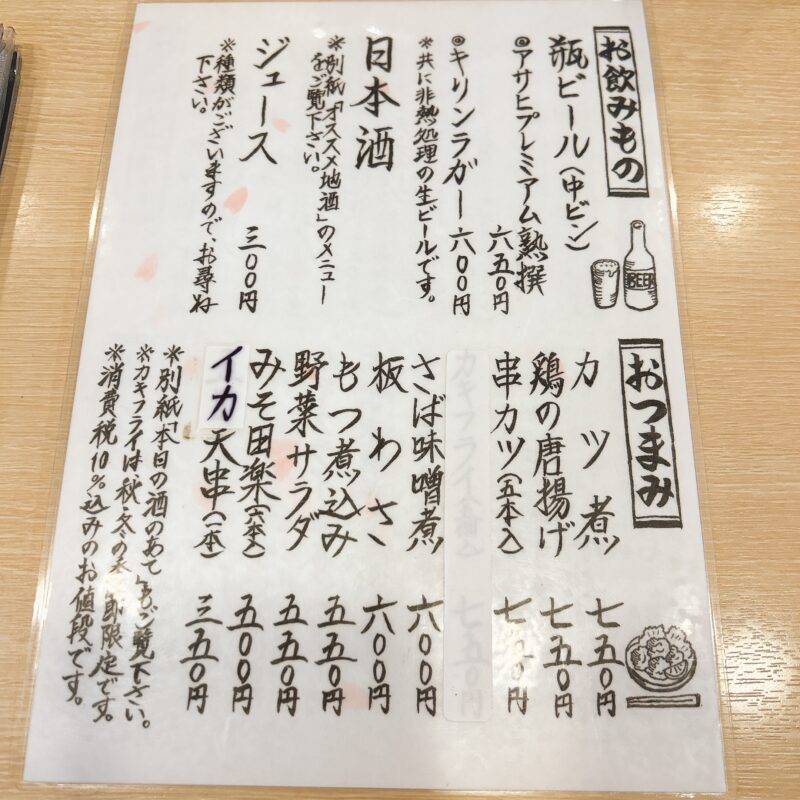 お飲みもの
瓶ビール(中ビン)
◎アサヒプレミアム熟撰
六五〇円
◎キリンラガー 六〇〇円
※共に非熱処理の生ビールです。
日本酒
※別紙「オススメ地酒」のメニュー
をご覧下さい。
ジュース 三〇〇円
※種類がございますので、お尋ね
下さい。
BEER
おつまみ
カツ煮 七五〇円
鶏の唐揚げ 七五〇円
串カツ(五本入) 七五〇円
カキフライ 七五〇円
さば味噌煮 六〇〇円
板わさ 六〇〇円
もつ煮込み 五五〇円
野菜サラダ 五五〇円
みそ田楽(六本入) 五〇〇円
イカ天串(一本) 三五〇円
※別紙「本日の酒のあて」もご覧下さい。
※カキフライは秋・冬の季節限定です。
※消費税10%込みのお値段です。